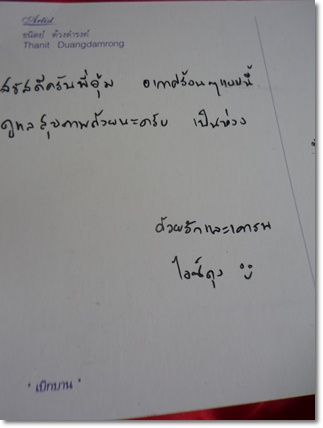 Artist
ธนิตย์ ด้วงดำรงค์
Thanit Duangdamrong
สวัสดีครับพี่อุ้ม อากาศร้อนๆแบบนี้
ดูแลสุขภาพด้วยนะครับ เป็นห่วง
ด้วยรักและเคารพ
"เบิกบาน"